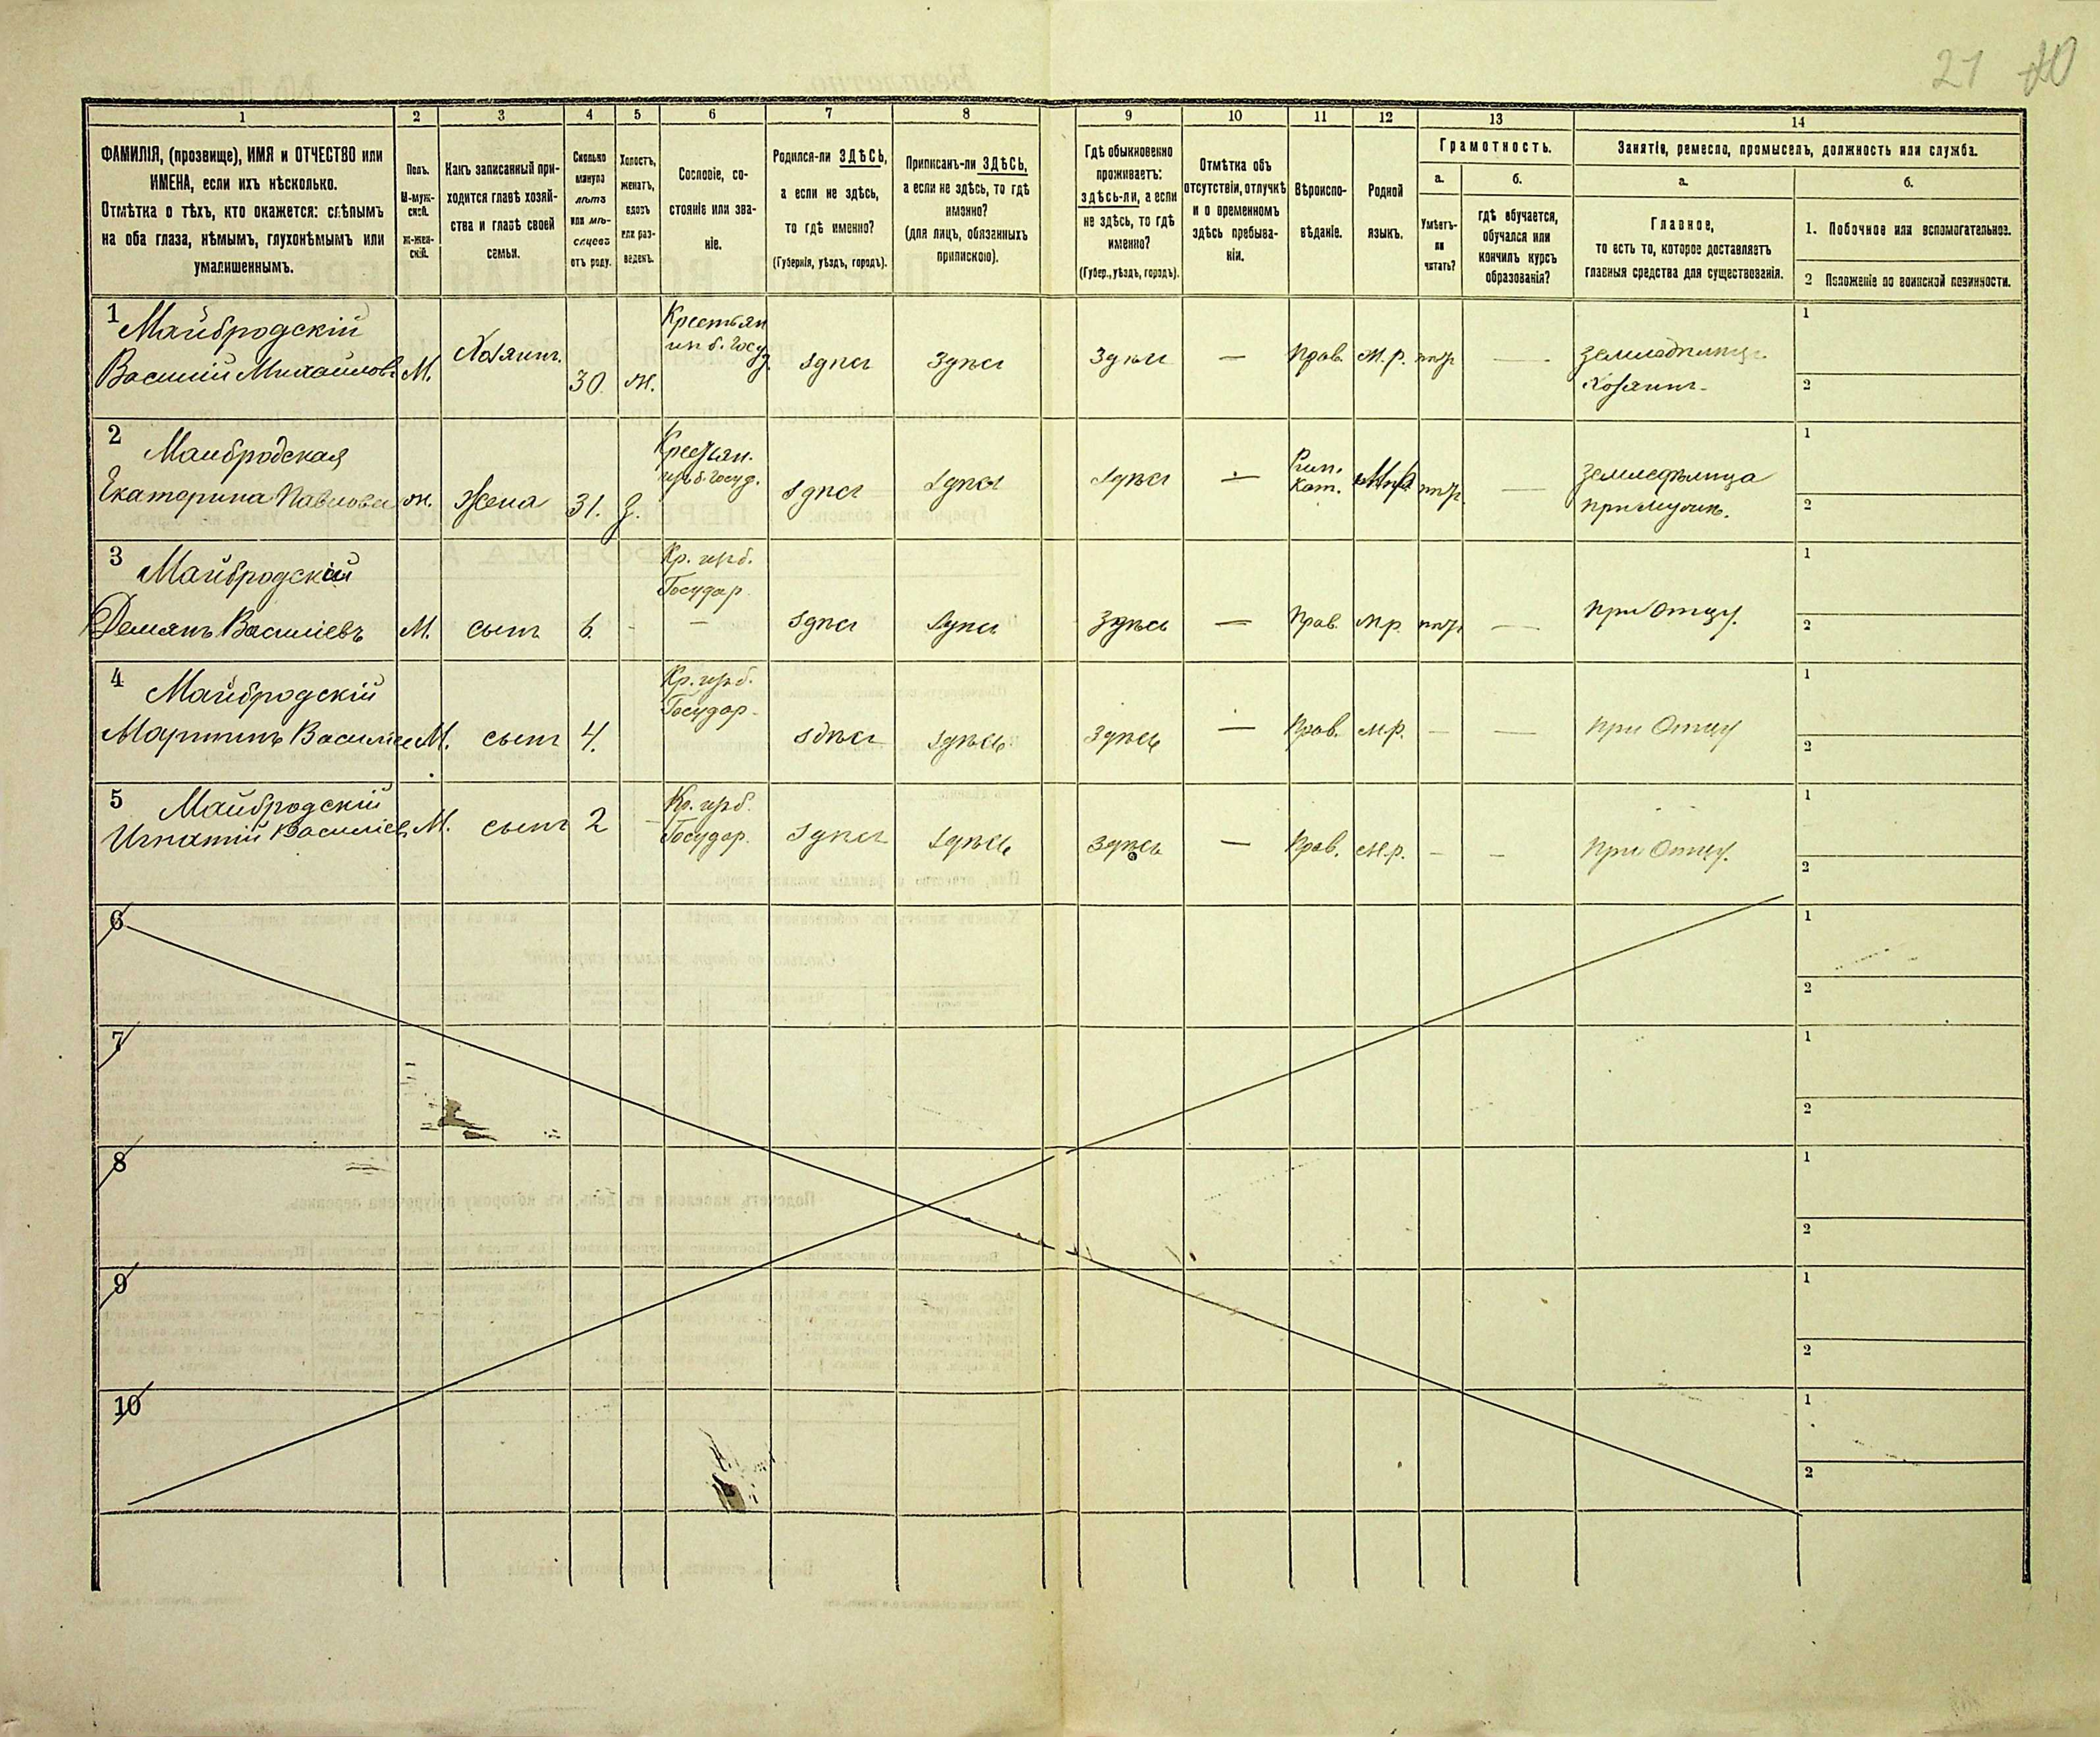 21 40
1
2
3
4
5
6
7
8
9
10
11
12
13
14
ФАМИЛІЯ, (прозвище), ИМЯ и ОТЧЕСТВО или
ИМЕНА, если ихъ нѣсколько.
Отмѣтка о тѣхъ, кто окажется: слѣпымъ
на оба глаза, нѣмымъ, глухонѣмымъ или
умалишеннымъ.
Полъ.
М-муж-
ской.
Ж-жен-
скій.
Какъ записанный при-
ходится главѣ хозяй-
ства и главѣ своей
семьи.
Сколько
минуло
лѣтъ
или мѣ-
сяцевъ
отъ роду.
Холостъ,
женатъ,
вдовъ
или раз-
веденъ.
Сословіе, со-
стояніе или зва-
ніе.
Родился-ли ЗДѢСЬ,
а если не здѣсь,
то гдѣ именно?
(Губернія, уѣздъ, городъ).
Приписанъ-ли ЗДѢСЬ,
а если не здѣсь, то гдѣ
именно?
(для лицъ, обязанныхъ
припискою).
Гдѣ обыкновенно
проживаетъ:
здѣсь-ли, а если
не здѣсь, то гдѣ
именно?
(Губер., уѣздъ, городъ).
Отмѣтка объ
отсутствіи, отлучкѣ
и о временномъ
здѣсь пребыва-
ніи.
Вѣроиспо-
вѣданіе.
Родной
языкъ.
Грамотность.
а.
Умѣетъ-
ли
читать?
б.
гдѣ обучается,
обучался или
кончилъ курсъ
образованія?
Занятіе, ремесло, промыселъ, должность или служба.
а.
Главное,
то есть то, которое доставляетъ
главныя средства для существованія.
б.
1. Побочное или вспомогательное.
2 Положеніе по воинской повинности.
1
Майбродскій
Василій Михайловъ
М.
Хозяинъ.
30.
ж.
Крестьян
из б. Госу
д.
здѣсь
Здѣсь
Здѣсь
—
Прав.
М.р.
нѣтъ
—
Земледѣлецъ.
Хозяинъ.
1
2
2
Майбродская
Екатерина Павлова
ж.
Жена
31.
З.
Крестьян.
изъ б. Госуд.
здѣсь
здѣсь
здѣсь
—
Рим.
Кат.
М.р.
нѣтъ.
—
Земледѣлица
при мужѣ.
1
2
3
Майбродскій
Демянъ Василіевъ
М.
сынъ
6.
-
Кр. изъ б.
Государ.
—
здѣсь
здѣсь
Здѣсь
—
Прав.
М.р.
нѣтъ
—
при Отцу.
1
2
4
Майбродскій
Мартинъ Василіе
М.
сынъ
4.
Кр. изъ б.
Государ.
здѣсь
здѣсь
Здѣсь
—
Прав.
М.р.
—
—
при Отцу
1
2
5
Майбродскій
Игнатій Василіев
М.
сынъ
2
Кр. изъ б.
Государ.
здѣсь
здѣсь
Здѣсь
—
Прав.
М.р.
—
—
при Отцу.
1
2
6
1
2
7
1
2
8
1
2
9
1
2
10
1
2